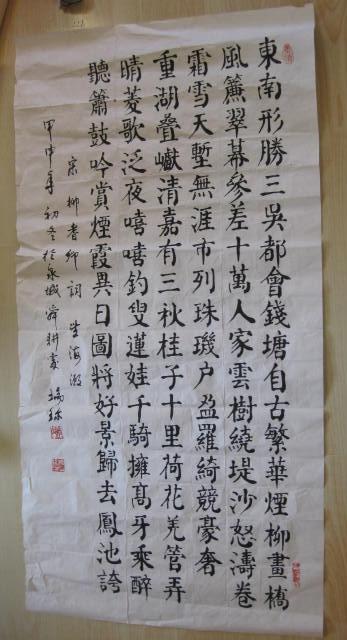 東南形勝三吳都會錢塘自古繁華煙柳畫橋
風簾翠幕參差十萬人家雲樹繞堤沙怒濤卷
霜雪天塹無涯市列珠璣户盈羅綺競豪奢
重湖叠巘清嘉有三秋桂子十里荷花羌管弄
晴菱歌泛夜嘻嘻釣叟蓮娃千騎擁髙牙乘醉
聽簫鼓吟賞煙霞異日圖將好景歸去鳳池誇
宋柳耆卿詞望海潮
甲申年初冬於泉城舜耕